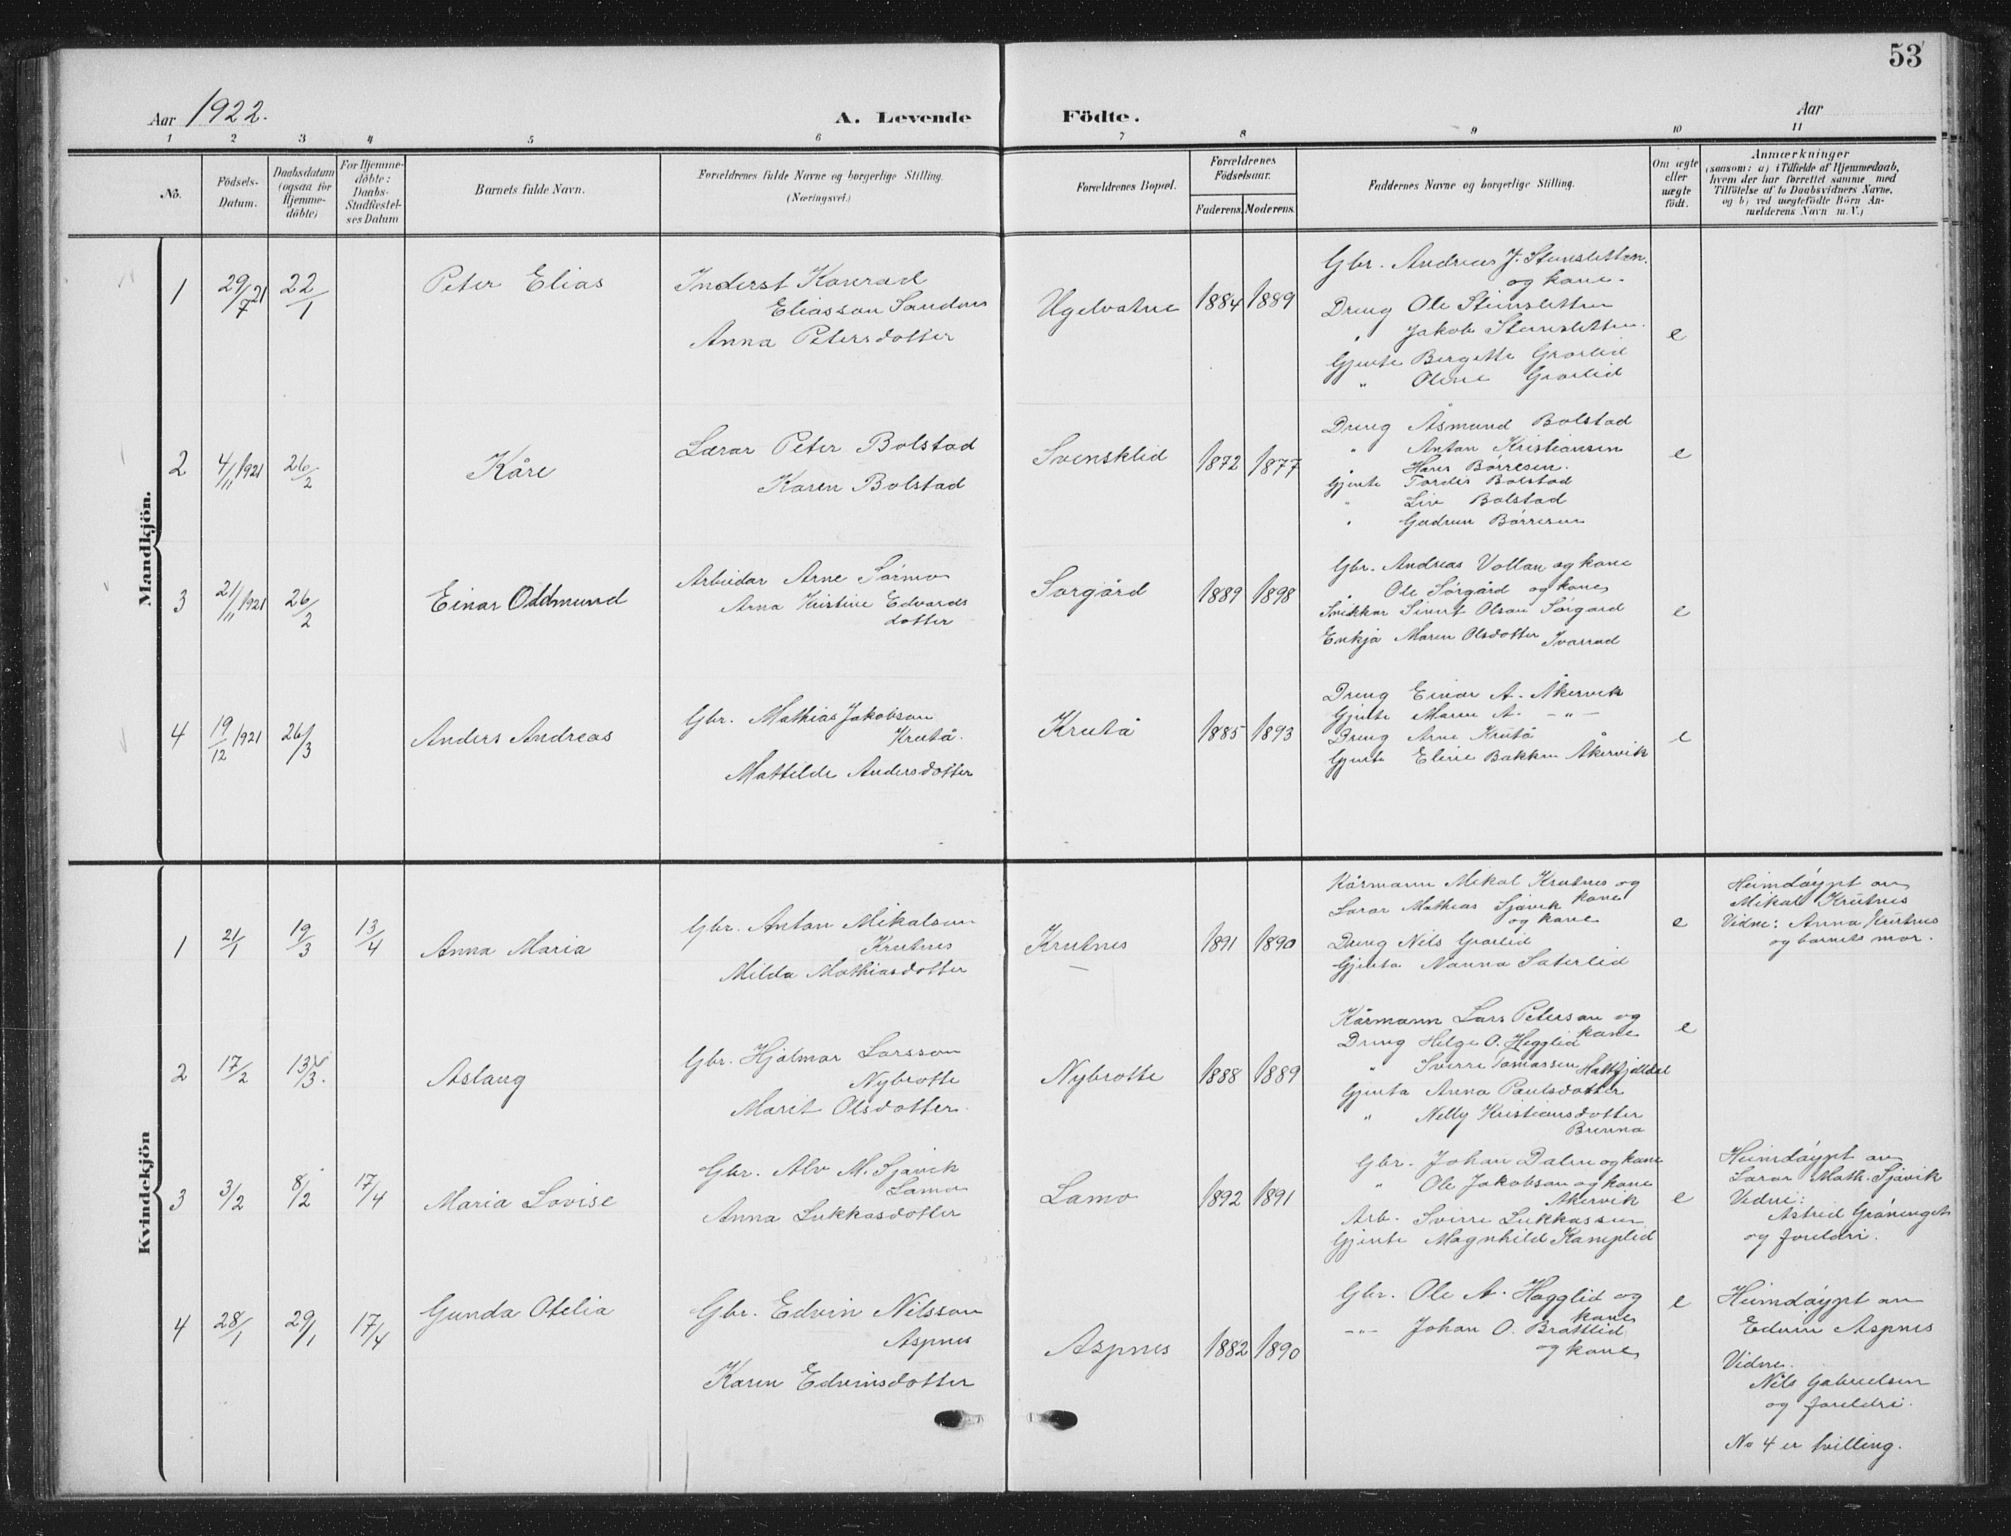 53
Aar 1922.
A. Levende Födte.
Aar
1 2 3 4 5 6 7 8 9 10 11
No.
Födsels-Datum.
Daabsdatum (ogsaa for Hjemmedöbte)
For Hjemmedöbte: Daabs-Stadfestelses Datum
Barnets fulde Navn.
Forældrenes fulde Navne og borgerlige Stilling.
(Næringsvei.)
Forældrenes Bopæl.
Forældrenes Födselsaar.
Faderens. Moderens.
Faddernes Navne og borgerlige Stilling.
Om ægte eller uægte födt.
Anmærkninger
(saasom: a) i Tilfælde af Hjemmedaab,
hvem der har forrettet samme med
Tilföielse af to Daabsvidners Navne,
og b) ved uægtefödte Börn An-
melderens Navn m. V.)
Mandkjön.
1 29/7 21 22/1 Peter Elias
Inderst Konrad
Eliasson Sandnes
Anna Petersdotter
Ugelvatne 1884 1889
Gbr. Andreas J. Steinsletten
og kone.
Dreng Ole Steinsletten
" Jakob Steinsletten.
Gjente Bergitte Grarlid
" Oline Grarlid
e
2 4/11 1921 26/2 Kåre
Lærar Peter Bolstad
Karen Bolstad
Svensklid 1872 1877
Dreng Åsmund Bolstad
" Anton Kristiansen
" Hans Börresen.
Gjente Tordis Bolstad
" Liv Bolstad
" Gudrun Börresen
e
3 21/11 1921 26/2 Einar Oddmund
Arbeidar Arne Sörmo
Arna Kristine Edvards
dotter
Sorgård 1889 1898
Gbr. Andreas Vollan og kone
" Ole Sørgård og kone
Snikkar Sivert Olson Sørgard
Enkja Maren Olsdotter Ivarrud
e
4 19/12 1921 26/3 Anders Andreas
Gbr. Mathias Jakobson
Krutå.
Mathilde Andersdotter
Krutå 1885 1893
Dreng Einar A. Åkervik
Gjente Maren A. — " —
Dreng Arne Krutå
Gjente Eline Bakken Åkervik
e
Kvindekjön
1 21/1 19/3 13/4 Anna Maria
Gbr. Anton Mikalsen
Krutnes
Milda Mathiasdotter
Krutnes 1891 1890
Kårmann Mikal Krutnes og
kone
Lærar Mathias Sjåvik
og kone
Dreng Nils Grarlid
Gjenta Nanna Sæterlid
e
Heimdøypt av
Mikal Krutnes
Vidne: Anna Krutnes
og barnets mor.
2 17/2 13/3. Aslaug
Gbr. Hjalmar Larsson
Nybrotte
Marit Olsdotter.
Nybrotte 1888 1889
Kårmann Lars Peterson og
kone
Dreng Helge O. Hegglid
" Sverre Tomassen
Gjenta Anna Paulsdotter
" Nelly Kristiansdotter
Brenna
e
3 3/2 8/2 17/4 Maria Lovise
Gbr. Alv M. Sjåvik
Lamo
Anna Lukkasdotter
Lamo 1892 1891
Gbr. Johan Dalen og kone
" Ole Jakobson og kone
Åkervik
Arb. Sverre Lukkassen
Gjente Magnhild Kamplid
e
Heimdøypt av
Lærar Math. Sjåvik
Vidne:
Astrid Gröninget
og foreldri.
4 28/1 29/1 17/4 Gunda Otelia
Gbr. Edvin Nilsson
Aspnes
Karen Edvinsdotter
Aspnes 1882 1890
Gbr. Ole A. Hegglid og
kone
—"— Johan O. Brattlid
og kone
e
Heimdøypt av
Edvin Aspnes
Vidne.
Nils Gabrielsen
og foreldri.
No 4 er tvilling.